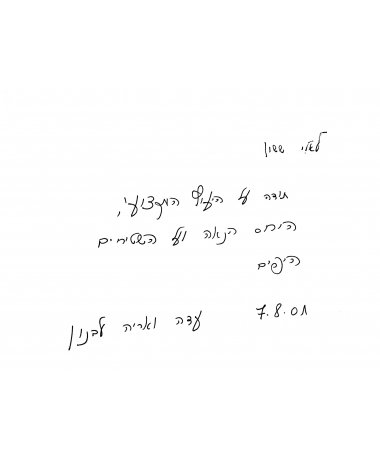 לאלי ששון
תודה על היעוץ המקצועי,
היחס הנאה ועל השטיחים
היפים
7.8.01
עדה ואריה לבנון